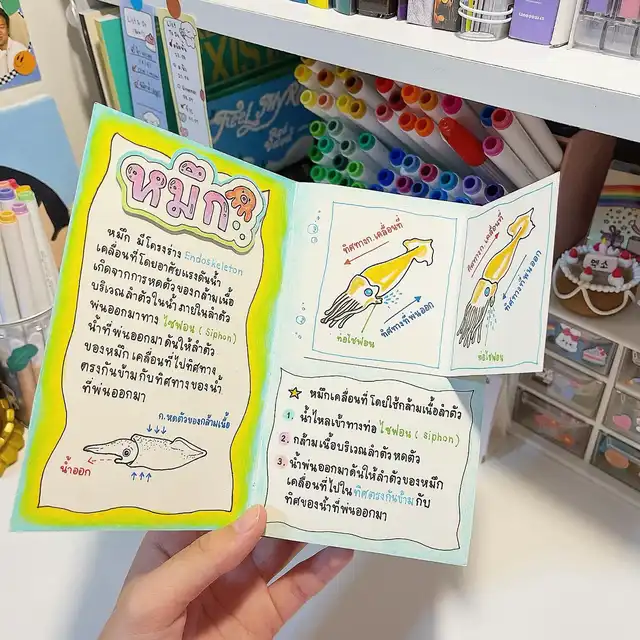 หมึก
หมึก มีโครงร่าง Endoskeleton
เคลื่อนที่โดยอาศัยแรงดันน้ำ
เกิดจากการหดตัวของกล้ามเนื้อ
บริเวณลำตัวในน้ำภายในลำตัว
พ่นออกมาทาง ไซฟอน ( Siphon )
น้ำที่พ่นออกมา ดันให้ลำตัว
ของหมึก เคลื่อนที่ไปทิศทาง
ตรงกันข้ามกับทิศทางของน้ำ
ที่พ่นออกมา
ก.หดตัวของกล้ามเนื้อ
น้ำออก
ทิศทางก.เคลื่อนที่
ทิศทางที่พ่นออก
ท่อไซฟอน
ทิศทางก.เคลื่อนที่
ทิศทางที่พ่นออก
ท่อไซฟอน
หมึกเคลื่อนที่ โดยใช้กล้ามเนื้อลำตัว
1. น้ำไหลเข้าทางท่อ ไซฟอน ( siphon )
2. กล้ามเนื้อบริเวณลำตัว หดตัว
3. น้ำพ่นออกมาดันให้ลำตัวของหมึก
เคลื่อนที่ไปใน ทิศตรงกันข้าม กับ
ทิศของน้ำที่พ่นออกมา